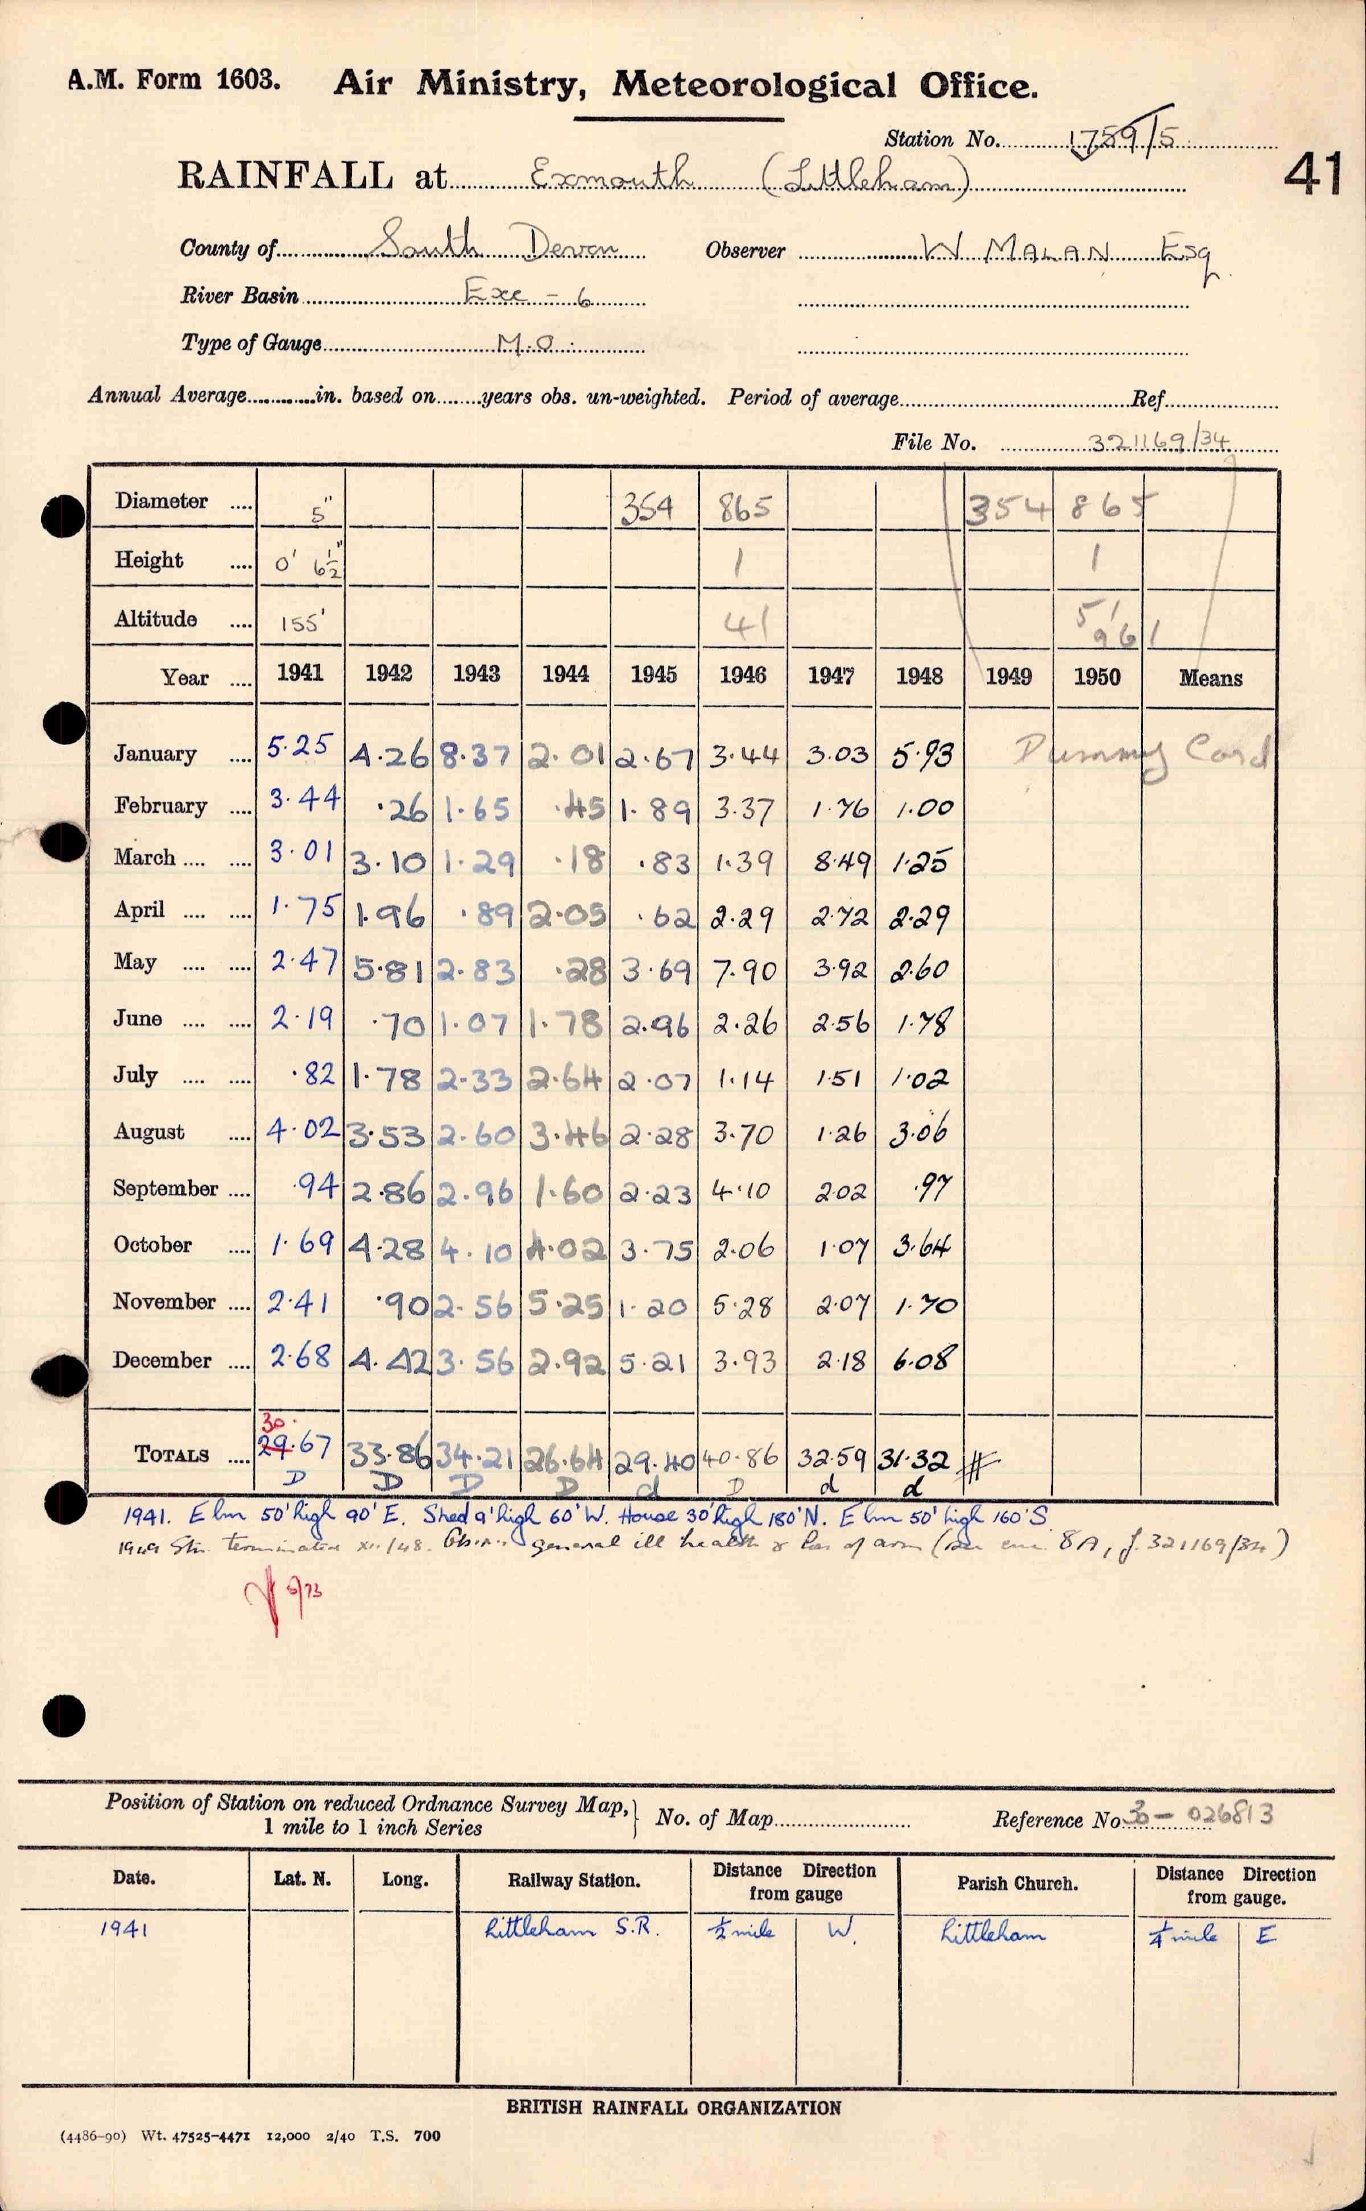 A.M. Form 1603. Air Ministry, Meteorological Office.
Station No. 1759/5
RAINFALL at Exmouth (Littleham)
41
County of South Devon Observer W MALAN Esq
River Basin Exe - 6
Type of Gauge M.O.
Annual Average in. based on years obs. un-weighted. Period of average Ref.
File No. 321169/34
Diameter .... 5" 354 865 354 865
Height .... 0' 6½" 1 1
Altitude .... 155' 41 5/ 961
Year .... 1941 1942 1943 1944 1945 1946 1947 1948 1949 1950 Means
January .... 5.25 4.26 8.37 2.01 2.67 3.44 3.03 5.93 Dummy Card
February .... 3.44 .26 1.65 .45 1.89 3.37 1.76 1.00
March .... .... 3.01 3.10 1.29 .18 .83 1.39 8.49 1.25
April .... .... 1.75 1.96 .89 2.05 .62 2.29 2.72 2.29
May .... .... 2.47 5.81 2.83 .28 3.69 7.90 3.92 2.60
June .... .... 2.19 .70 1.07 1.78 2.96 2.26 2.56 1.78
July .... .... .82 1.78 2.33 2.64 2.07 1.14 1.51 1.02
August .... 4.02 3.53 2.60 3.46 2.28 3.70 1.26 3.06
September .... .94 2.86 2.96 1.60 2.23 4.10 2.02 .97
October .... 1.69 4.28 4.10 4.02 3.75 2.06 1.07 3.64
November .... 2.41 .90 2.56 5.25 1.20 5.28 2.07 1.70
December .... 2.68 4.42 3.56 2.92 5.21 3.93 2.18 6.08
30.
TOTALS .... 29.67 33.86 34.21 26.64 29.40 40.86 32.59 31.32 #
D D D D d D d d
1941. Elm 50' high 90' E. Shed 9' high 60' W. House 30' high 180' N. Elm 50' high 160' S.
1949 Stn. terminated XII/48. general ill health & loss of arm (see enc. 8A, f. 321169/34)
6/73
Position of Station on reduced Ordnance Survey Map, 1 mile to 1 inch Series } No. of Map Reference No. 30-026813
Date. Lat. N. Long. Railway Station. Distance from gauge Direction Parish Church. Distance from gauge. Direction
1941 Littleham S.R. ½ mile W. Littleham ¼ mile E
BRITISH RAINFALL ORGANIZATION
(4486-90) Wt. 47525-4471 12,000 2/40 T.S. 700